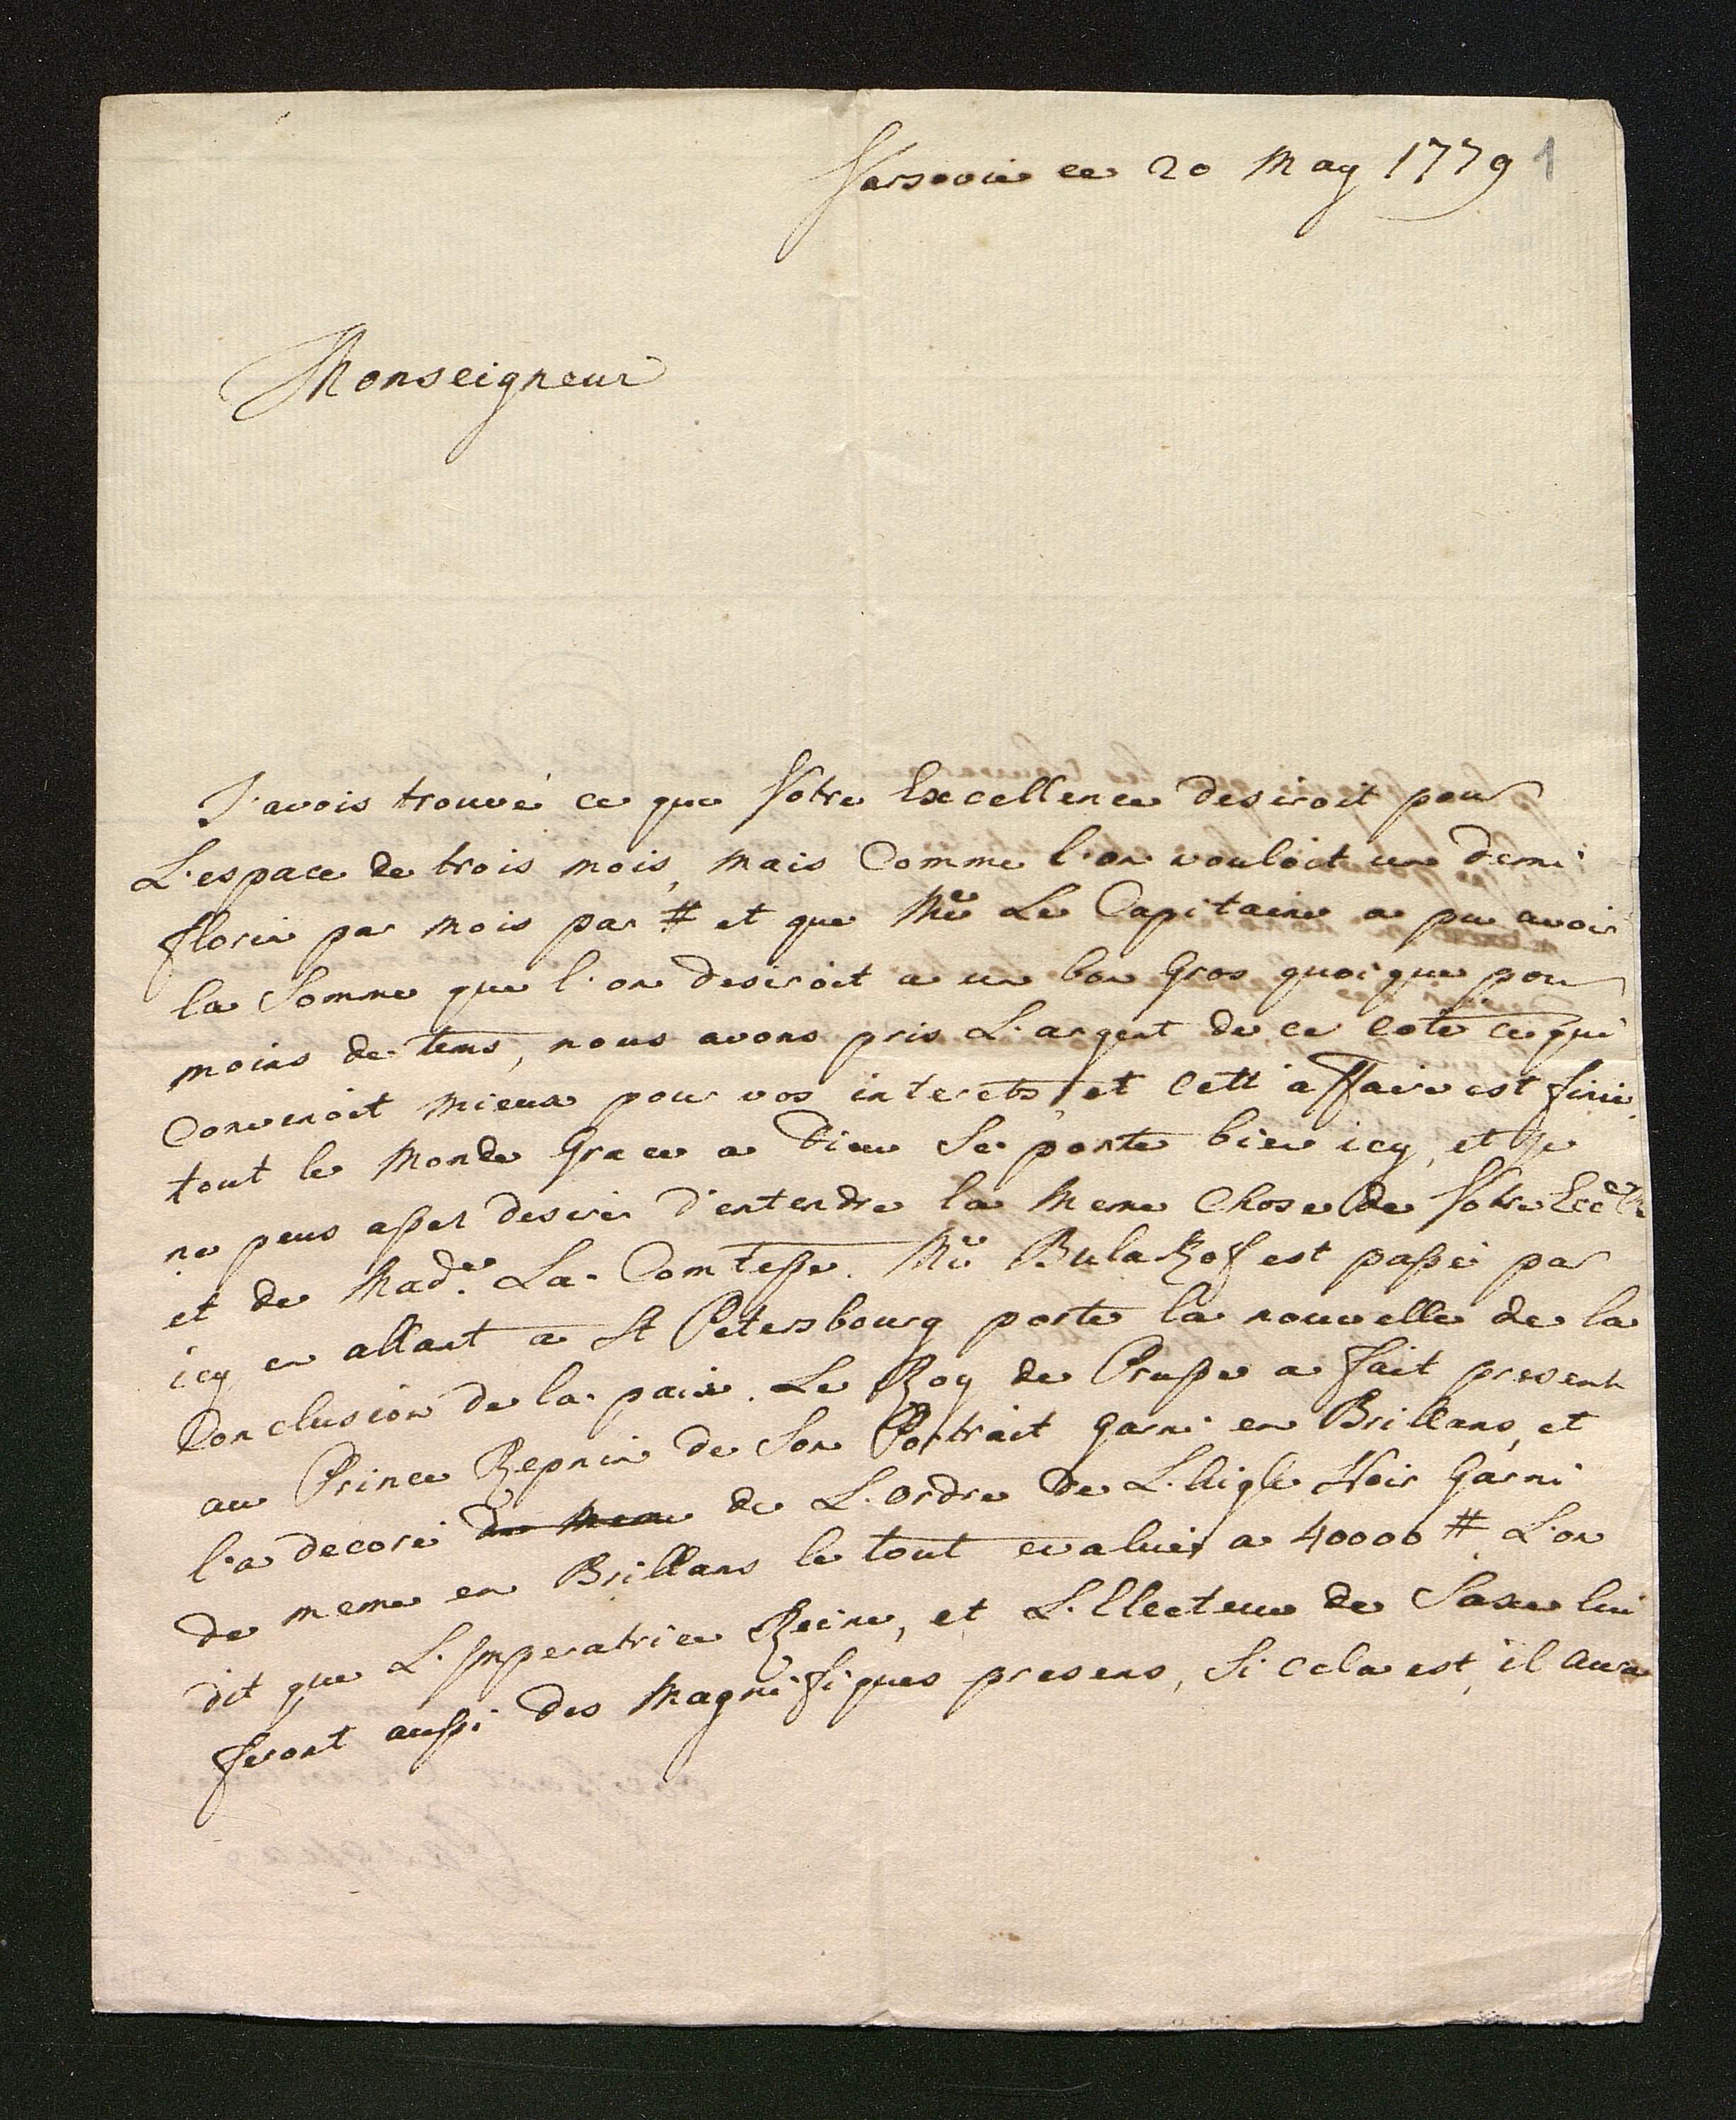 Varsovie ce 20 May 1779 1
Monseigneur
J'avois trouvé ce que Votre Excellence desiroit pour
L'espace de trois mois, mais Comme l'on vouloit un demi
florin par mois par # et que Mr Le Capitaine a pu avoir
la Somme que l'on desiroit a un bon Gros quoique pour
moins de tems, nous avons pris L'argent de ce coté ce qui
Convenoit mieux pour vos interets, et cett'affaire est finie.
tout le Monde Grace a Dieu Se porte bien icy, et Je
ne peus assez desirer d'entendre la Meme Chose de Votre Ecc
et de Made. La Comtesse. Mr Bulakof est passé par
icy en allant a St Petersbourg porte la nouvelle de la
Conclusion de la paix. Le Roy de Prusse a fait present
au Prince Repnin de Son Portrait garni en Brillans, et
l'a decoré de meme de L'ordre de L'Aigle Noir Garni
de meme en Brillans le tout evalués a 40000 # L'on
dit que L'Imperatrice Reine, et L'Electeur de Saxe lui
feront aussi des Magnifiques presens, Si cela est, il aura